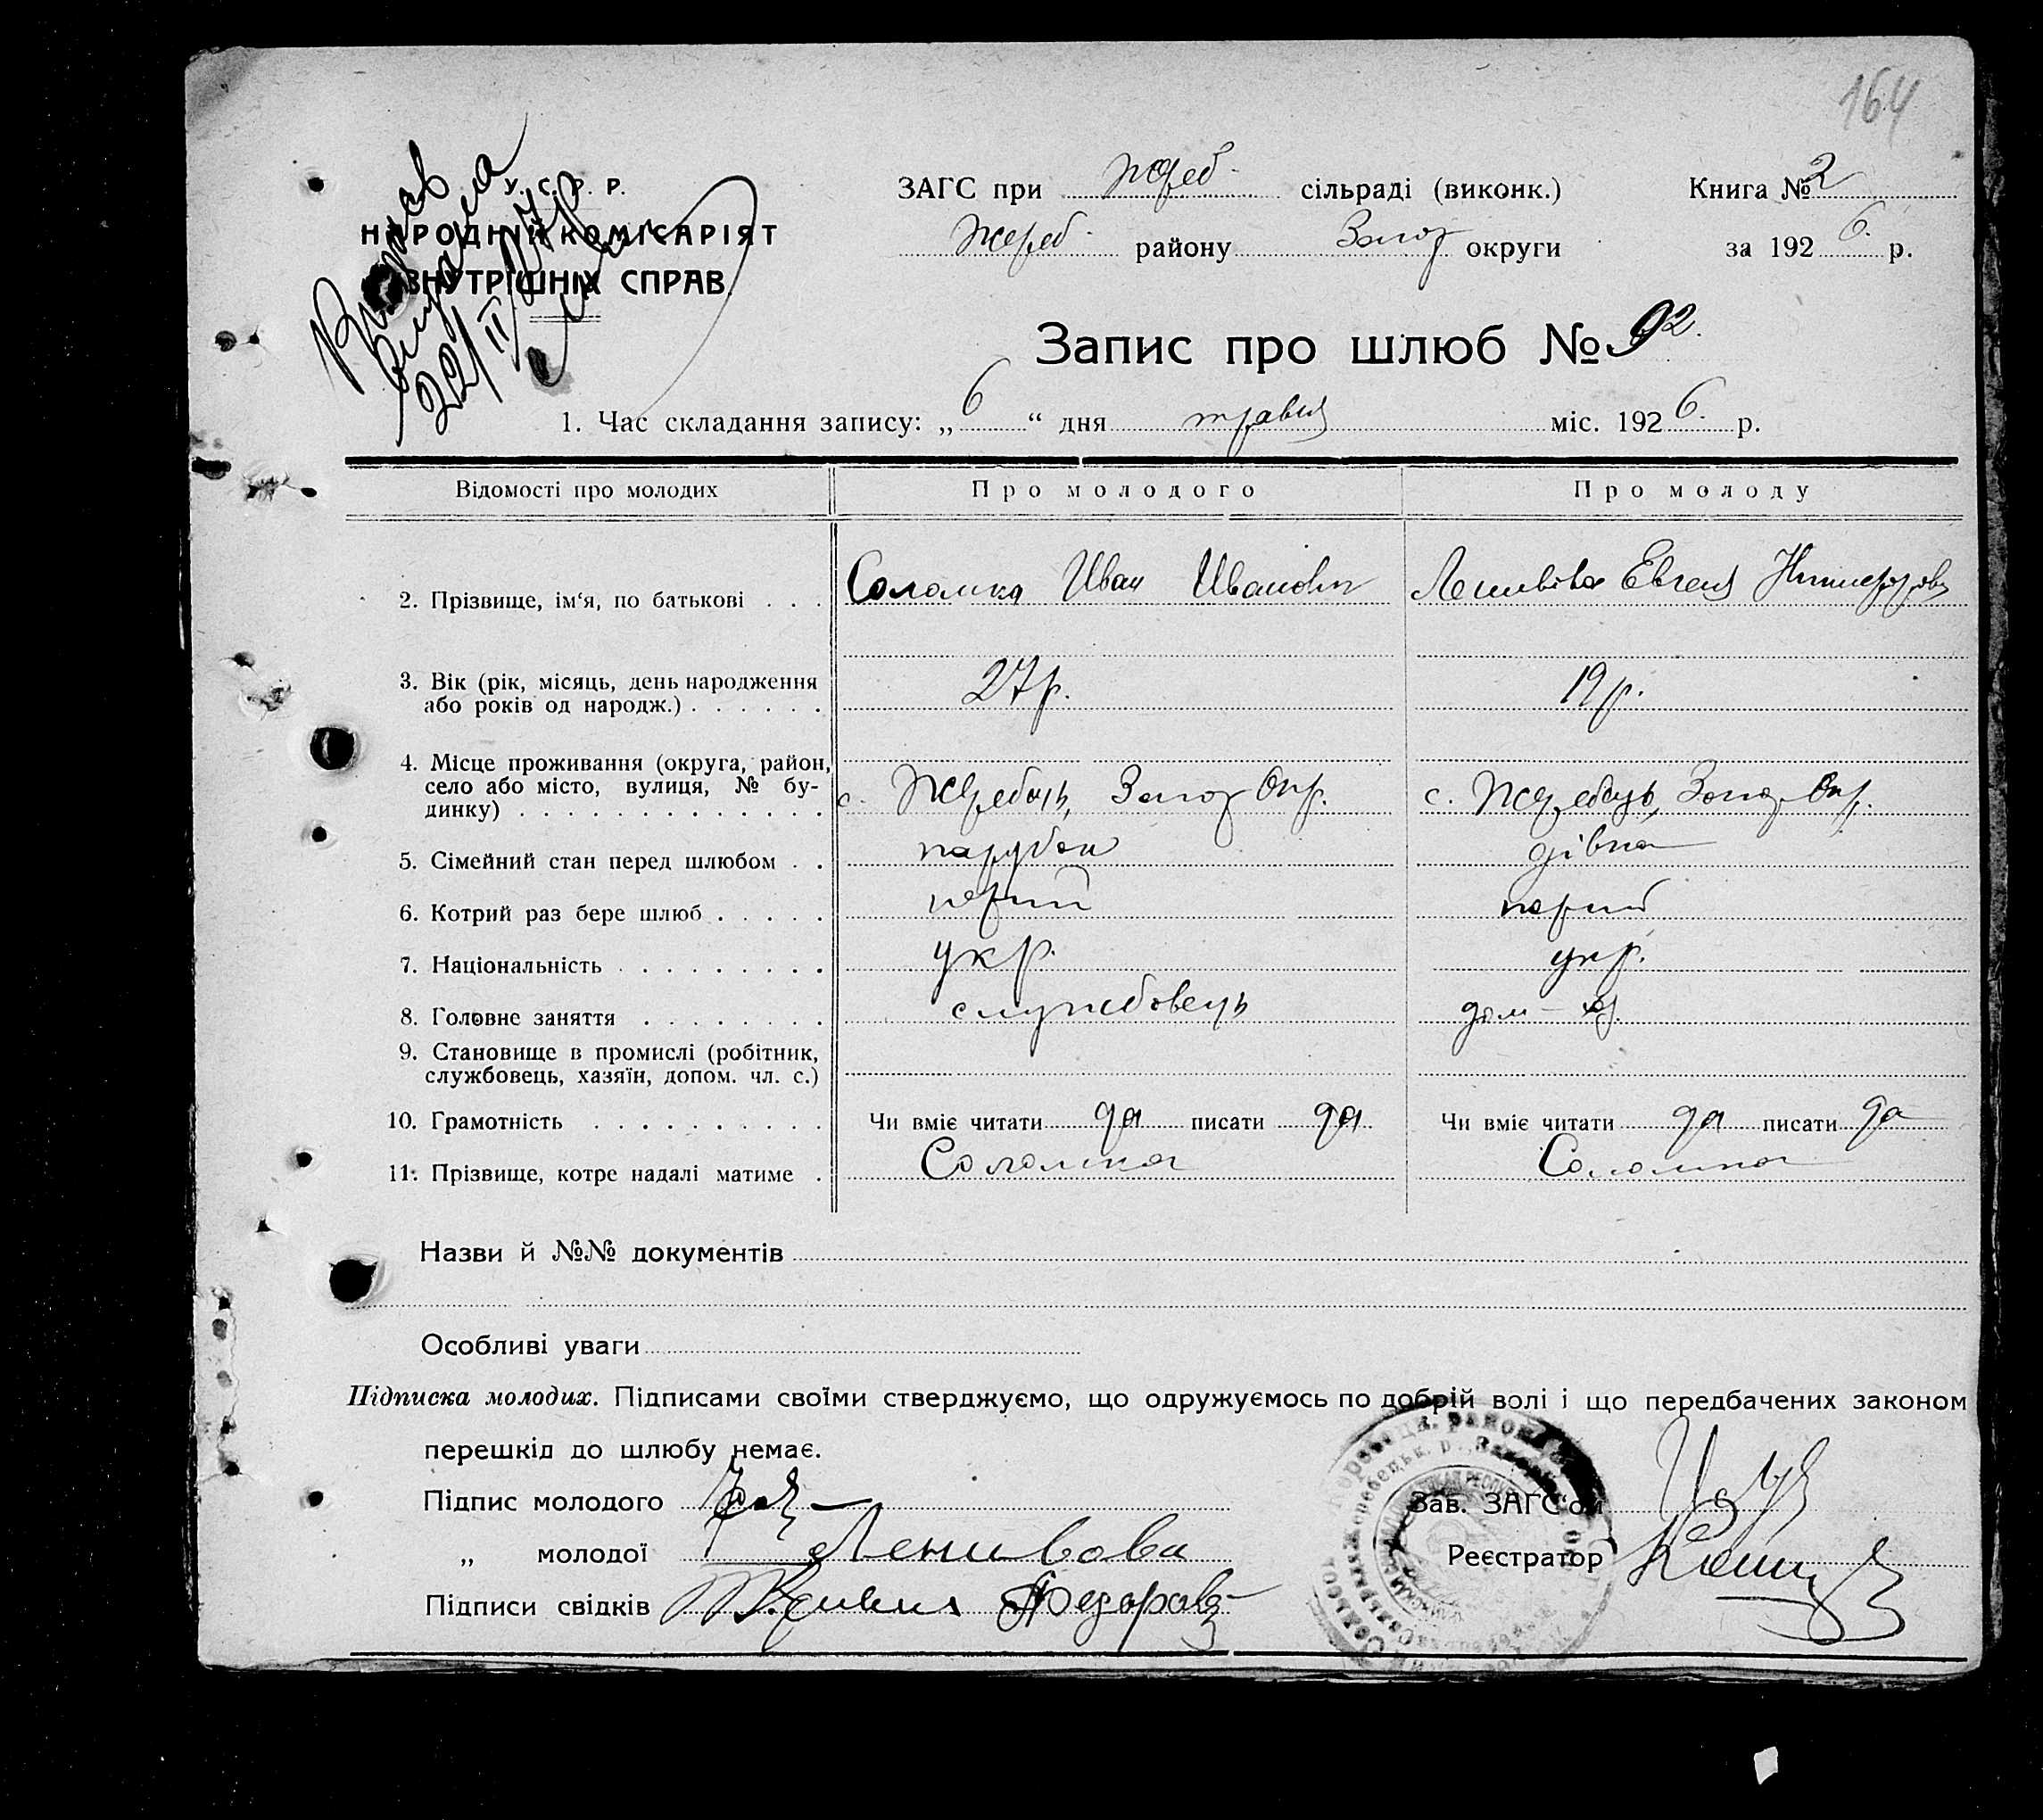 164
У. С. Р. Р.
НАРОДНІЙ КОМІСАРІЯТ
ВНУТРІШНІХ СПРАВ.
Выпись
выдана
22/II
ЗАГС при Жереб. сільраді (виконк.) Книга № 2
Жереб. району Запор округи за 1926. р.
Запис про шлюб № 92.
1. Час складання запису: „ 6 “ дня травня міс. 1926. р.
Відомості про молодих Про молодого Про молоду
2. Прізвище, ім‘я, по батькові . . . Соломка Иван Иванович Ленивова Евгения Никифоровн
3. Вік (рік, місяць, день народження
або років од народж.) . . . . . . 27 р. 19 р.
4. Місце проживання (округа, район,
село або місто, вулиця, № бу-
динку) . . . . . . . . . . . . . с. Жеребець, Запор Окр. с. Жеребець, Запор. Окр.
5. Сімейний стан перед шлюбом . . парубок дівка
6. Котрий раз бере шлюб . . . . . перший перший
7. Національність . . . . . . . . . укр. укр.
8. Головне заняття . . . . . . . . службовець дом-хоз.
9. Становище в промислі (робітник,
службовець, хазяїн, допом. чл. с.)
10. Грамотність . . . . . . . . . . Чи вміє читати да писати да Чи вміє читати да писати да
11. Прізвище, котре надалі матиме . Соломка Соломка
Назви й №№ документів
Особливі уваги
Підписка молодих. Підписами своїми стверджуємо, що одружуємось по добрій волі і що передбачених законом
перешкід до шлюбу немає.
Підпис молодого Зав. ЗАГС‘ом
„ молодої Ленивова Реєстратор
Підписи свідків Федоров